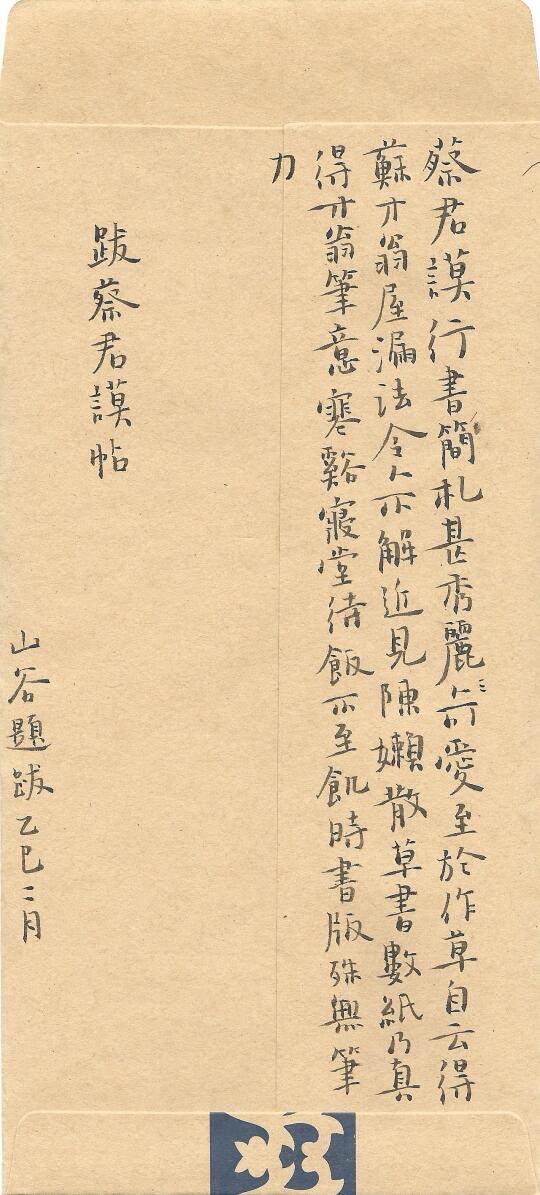 蔡君謨行書簡札甚秀麗可愛至於作草自云得
蘇才翁屋漏法令人不解近見陳嬾散草書數紙乃真
得才翁筆意寒谿寢堂待飯不至飢時書版殊無筆
力
跋蔡君謨帖
山谷題跋乙巳二月